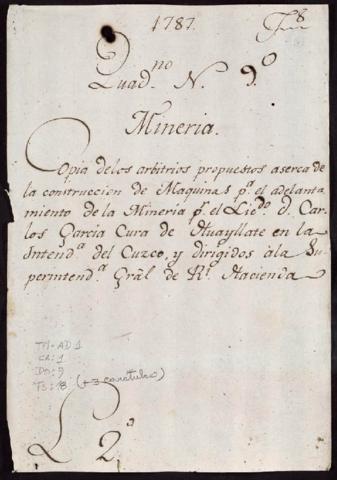 1787. F 8
Quad.no N. 9.o
Mineria.
Copia de los arbitrios propuestos aserca de
la construccion de Maquinas p.a el adelanta
miento de la Mineria p.r el Lic.do d. Car
los Garcia Cura de Huayllate en la
Intend.a del Cuzco, y dirigidos ála Su
perintend.a Grãl de R.l Hacienda
TM-AD 1
CA: 1
DO: 9
Fs: 18 (+3 caratulas)
L 2.o